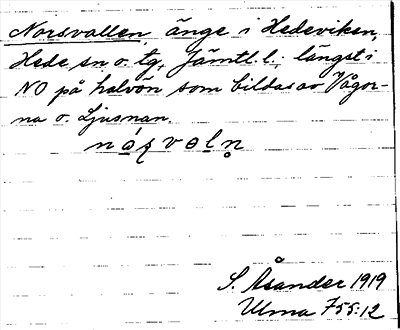 Norsvallen änge i Hedeviken,
Hede sn o. tg, Jämtl. l.; längst i
NO på halvön som bildas av Vågor-
na o. Ljusnan.
S. Åsander 1919
Ulma 755:12